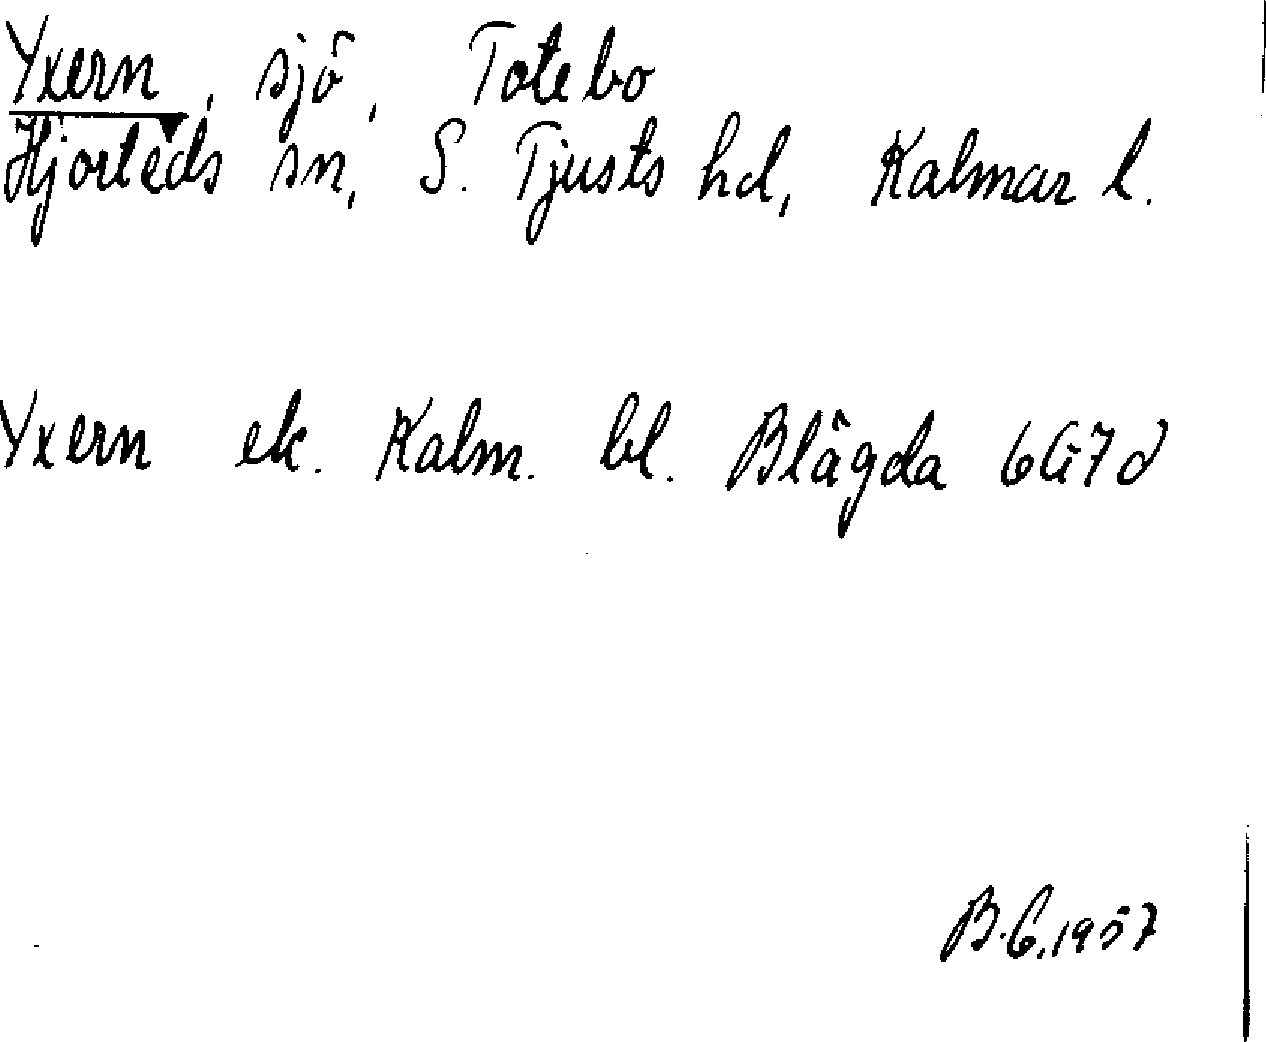 Yxern, sjö, Totebo
Hjorteds sn, S. Tjusts hd, Kalmar l.
Yxern ek. Kalm. bl. Blågda 6G7d
B.C. 1957